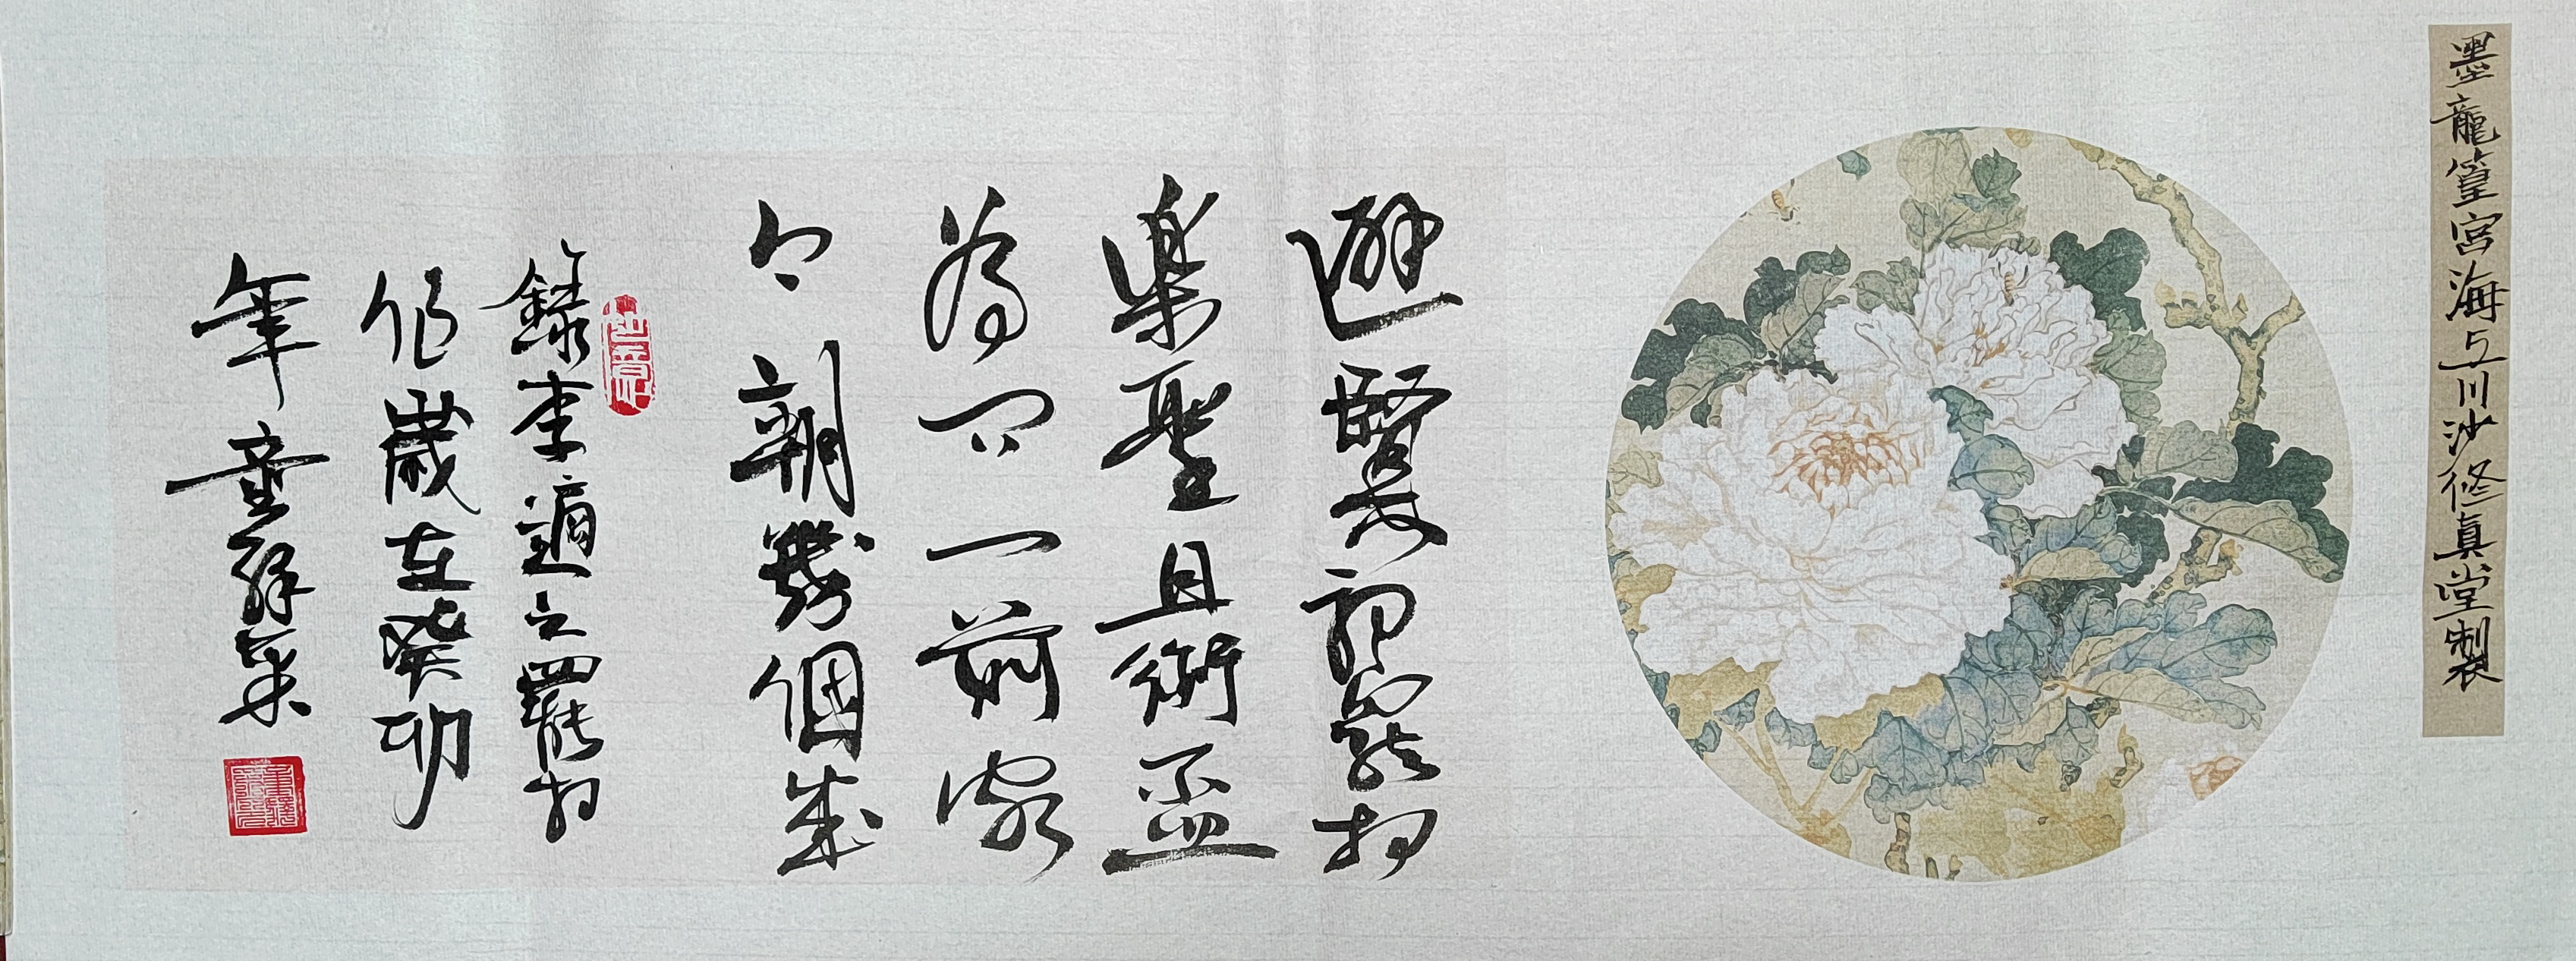 墨龍篁宮海上川沙修真堂製
避賢初罷相
楽聖且銜盃
為問門前客
今朝幾個來
錄李適之罷相
作歲在癸卯
年童